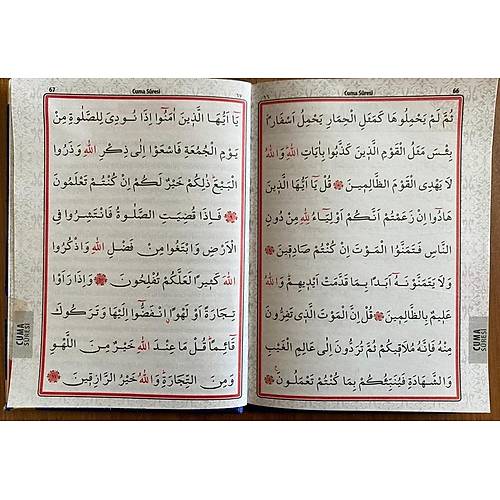 66
Cuma Sûresi
ثُمَّ لَمْ يَحْمِلُوهَا كَمَثَلِ الْحِمَارِ يَحْمِلُ اَسْفَارًا
بِئْسَ مَثَلُ الْقَوْمِ الَّذِينَ كَذَّبُوا بِاٰيَاتِ اللّٰهِ وَاللّٰهُ
لَا يَهْدِى الْقَوْمَ الظَّالِمِينَ قُلْ يَٓا اَيُّهَا الَّذِينَ
هَادُٓوا اِنْ زَعَمْتُمْ اَنَّكُمْ اَوْلِيَٓاءُ لِلّٰهِ مِنْ دُونِ
النَّاسِ فَتَمَنَّوُا الْمَوْتَ اِنْ كُنْتُمْ صَادِقِينَ
وَلَا يَتَمَنَّوْنَهُٓ اَبَدًا بِمَا قَدَّمَتْ اَيْدِيهِمْ وَاللّٰهُ
عَلِيمٌ بِالظَّالِمِينَ قُلْ اِنَّ الْمَوْتَ الَّذِى تَفِرُّونَ
مِنْهُ فَاِنَّهُ مُلَاقِيكُمْ ثُمَّ تُرَدُّونَ اِلٰى عَالِمِ الْغَيْبِ
وَالشَّهَادَةِ فَيُنَبِّئُكُمْ بِمَا كُنْتُمْ تَعْمَلُونَ
CUMA
SÛRESİ
67
Cuma Sûresi
يَٓا اَيُّهَا الَّذِينَ اٰمَنُٓوا اِذَا نُودِىَ لِلصَّلٰوةِ مِنْ
يَوْمِ الْجُمُعَةِ فَاسْعَوْا اِلٰى ذِكْرِ اللّٰهِ وَذَرُوا
الْبَيْعَ ذٰلِكُمْ خَيْرٌ لَكُمْ اِنْ كُنْتُمْ تَعْلَمُونَ
فَاِذَا قُضِيَتِ الصَّلٰوةُ فَانْتَشِرُوا فِى
الْاَرْضِ وَابْتَغُوا مِنْ فَضْلِ اللّٰهِ وَاذْكُرُوا
اللّٰهَ كَثِيرًا لَعَلَّكُمْ تُفْلِحُونَ وَاِذَا رَاَوْا
تِجَارَةً اَوْ لَهْوًا انْفَضُّٓوا اِلَيْهَا وَتَرَكُوكَ
قَٓائِمًا قُلْ مَا عِنْدَ اللّٰهِ خَيْرٌ مِنَ اللَّهْوِ
وَمِنَ التِّجَارَةِ وَاللّٰهُ خَيْرُ الرَّازِقِينَ
CUMA
SÛRESİ